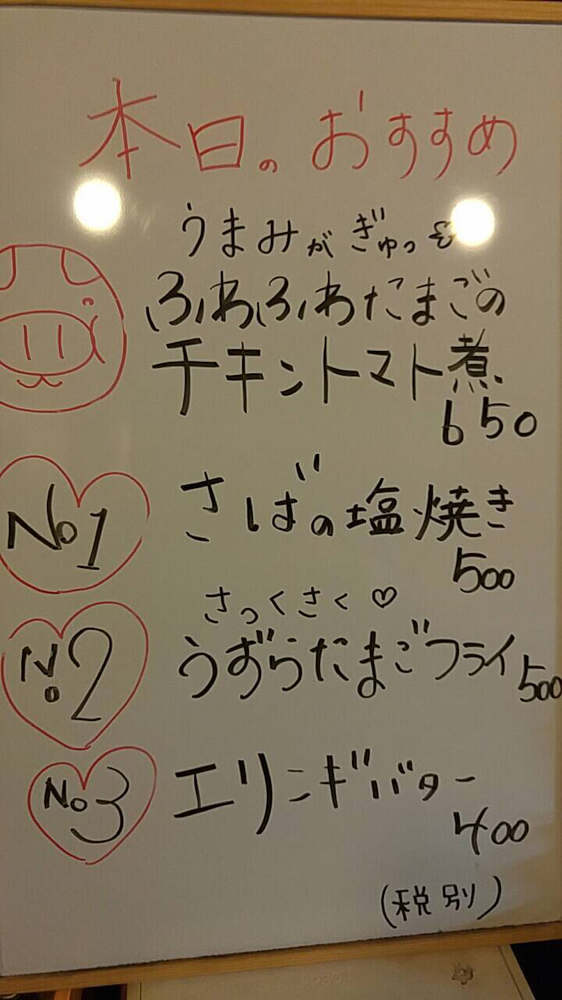 本日のおすすめ
うまみがぎゅっ
ふわふわたまごの
チキントマト煮
650
No1 さばの塩焼き
500
さっくさく♡
No2 うずらたまごフライ 500
No3 エリンギバター
400
(税別)